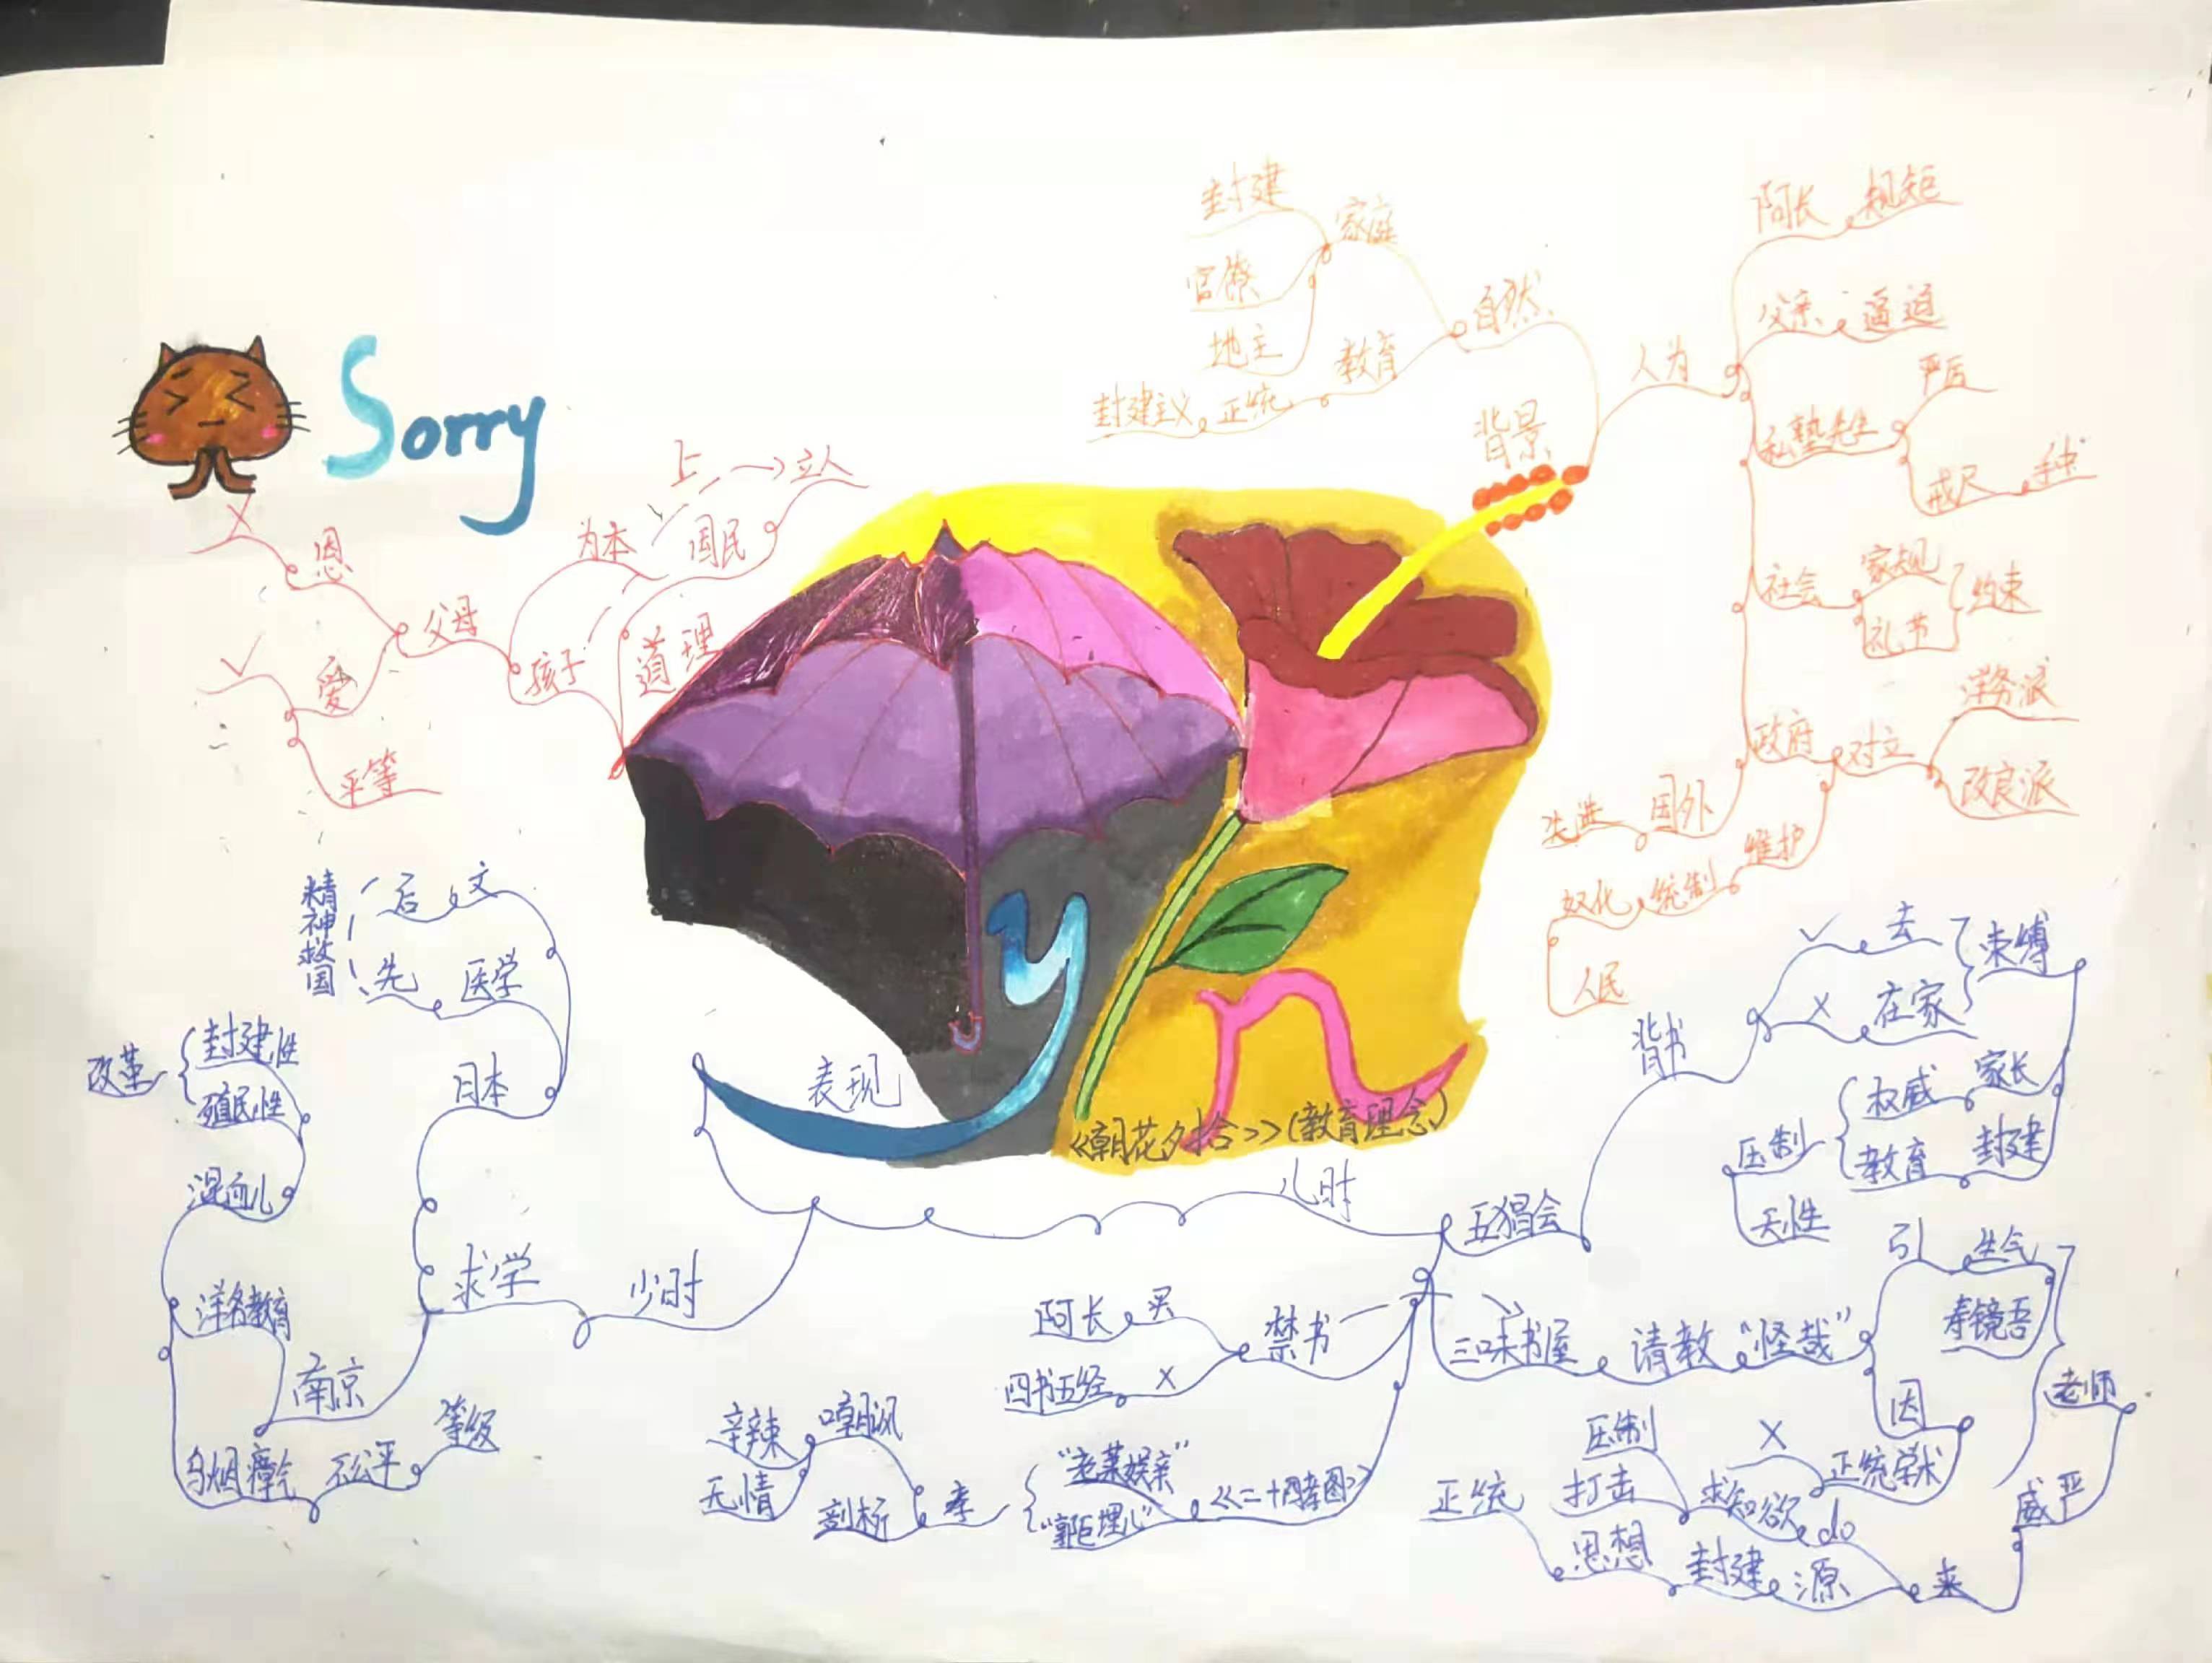 Sorry
《朝花夕拾》(教育理念)
背景
自然
家庭
封建
官僚
地主
教育
正统
封建主义
人为
阿长 规矩
父亲 逼迫
私塾先生
严厉
戒尺
社会
家规
礼节
约束
政府
对立
洋务派
改良派
维护
统制
奴化
人民
国外
先进
表现
儿时
五猖会
背书
✓ 去
X 在家
束缚
家长
权威
封建
教育
压制
天性
三味书屋
请教
“怪哉”
引
生气
寿镜吾
因
正统学术
X
求知欲
压制
打击
do
老师
威严
来
源
封建
思想
正统
禁书
买
阿长
X
四书五经
《二十四孝图》
“老莱娱亲”
“郭巨埋儿”
孝
嘲讽
剖析
辛辣
无情
少时
求学
日本
文
后
医学
先
精神救国
南京
洋务教育
乌烟瘴气
不公平
等级
混血儿
殖民性
封建性
改革
道理
国民
立人
孩子
为本
上
父母
恩
X
爱
✓
平等